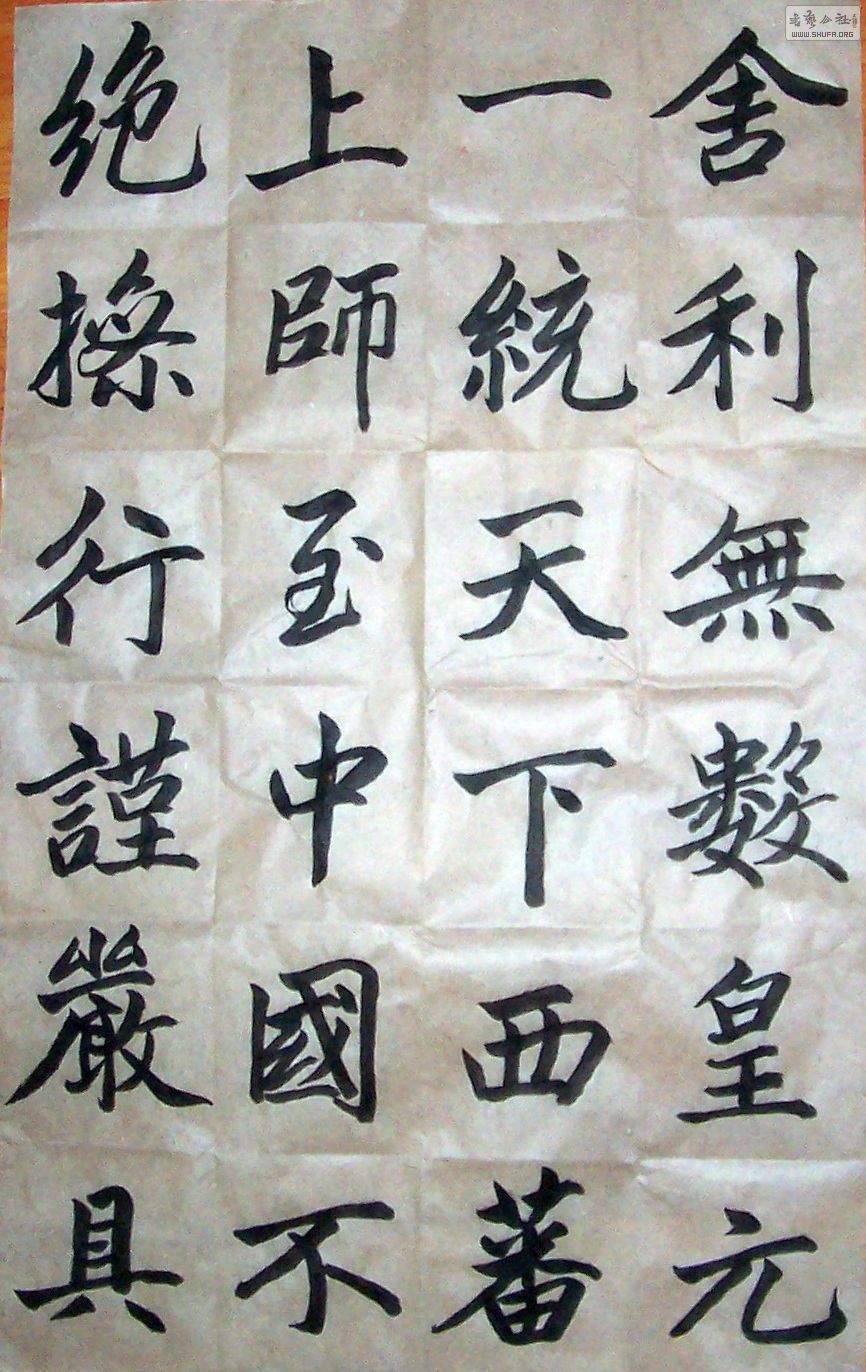 舍利無數皇元
一統天下西蕃
上師至中國不
絶操行謹嚴具
WWW.SHUFA.ORG